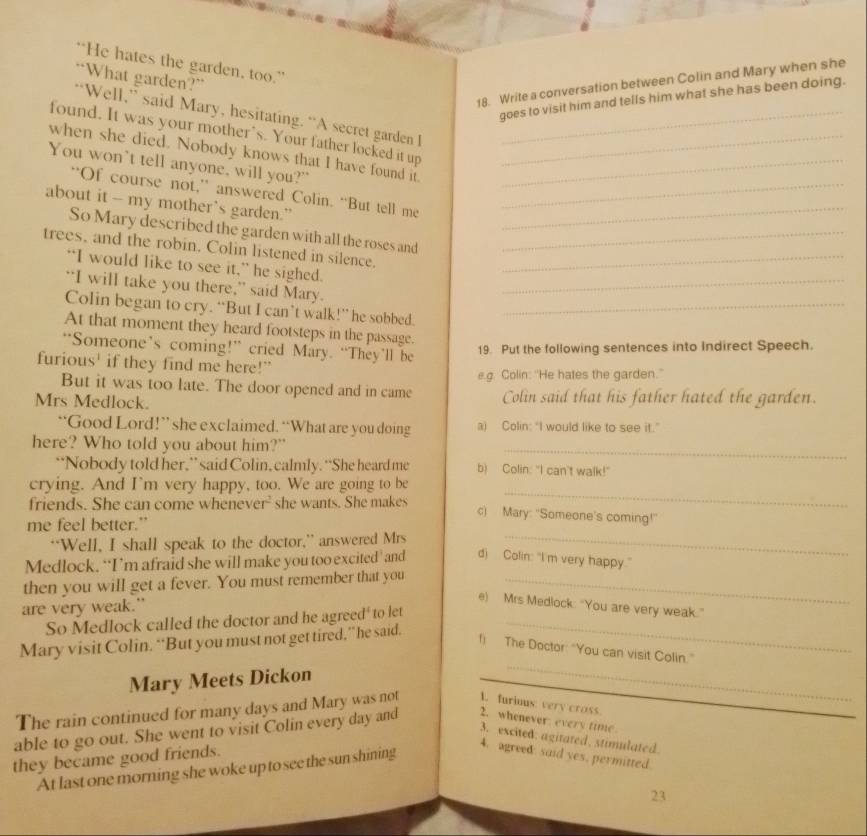 “He hates the garden, too.”
“What garden?”
“Well,” said Mary, hesitating. “A secret garden I
found. It was your mother’s. Your father locked it up
when she died. Nobody knows that I have found it.
You won’t tell anyone, will you?”
“Of course not,” answered Colin. “But tell me
about it – my mother’s garden.”
So Mary described the garden with all the roses and
trees, and the robin. Colin listened in silence.
“I would like to see it,” he sighed.
“I will take you there,” said Mary.
Colin began to cry. “But I can’t walk!” he sobbed.
At that moment they heard footsteps in the passage.
“Someone’s coming!” cried Mary. “They’ll be
furious¹ if they find me here!”
But it was too late. The door opened and in came
Mrs Medlock.
“Good Lord!” she exclaimed. “What are you doing
here? Who told you about him?”
“Nobody told her,” said Colin, calmly. “She heard me
crying. And I’m very happy, too. We are going to be
friends. She can come whenever² she wants. She makes
me feel better.”
“Well, I shall speak to the doctor,” answered Mrs
Medlock. “I’m afraid she will make you too excited³ and
then you will get a fever. You must remember that you
are very weak.”
So Medlock called the doctor and he agreed⁴ to let
Mary visit Colin. “But you must not get tired,” he said.
Mary Meets Dickon
The rain continued for many days and Mary was not
able to go out. She went to visit Colin every day and
they became good friends.
At last one morning she woke up to see the sun shining
18. Write a conversation between Colin and Mary when she
goes to visit him and tells him what she has been doing.
19. Put the following sentences into Indirect Speech.
e.g. Colin: “He hates the garden.”
Colin said that his father hated the garden.
a) Colin: “I would like to see it.”
b) Colin: “I can’t walk!”
c) Mary: “Someone’s coming!”
d) Colin: “I’m very happy.”
e) Mrs Medlock: “You are very weak.”
f) The Doctor: “You can visit Colin.”
1. furious: very cross.
2. whenever: every time.
3. excited: agitated, stimulated.
4. agreed: said yes, permitted.
23